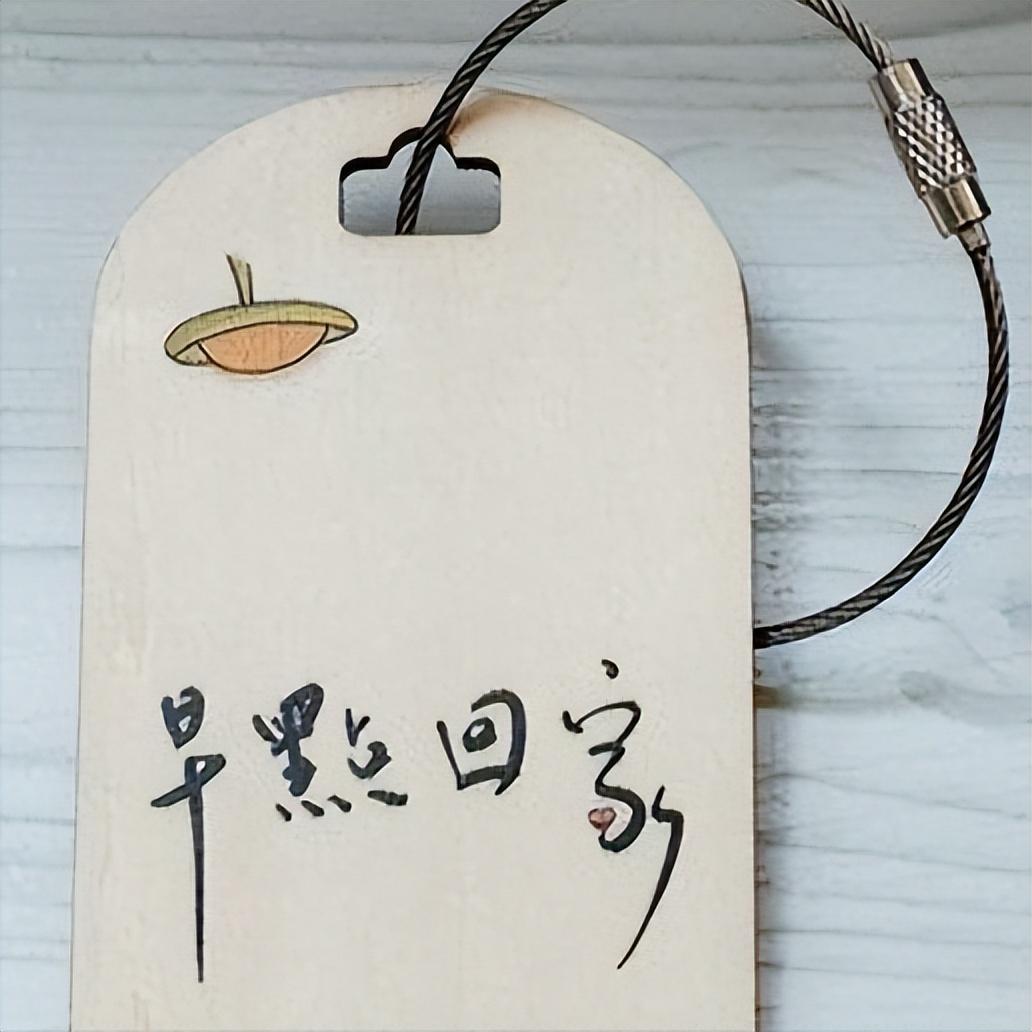 早點回家